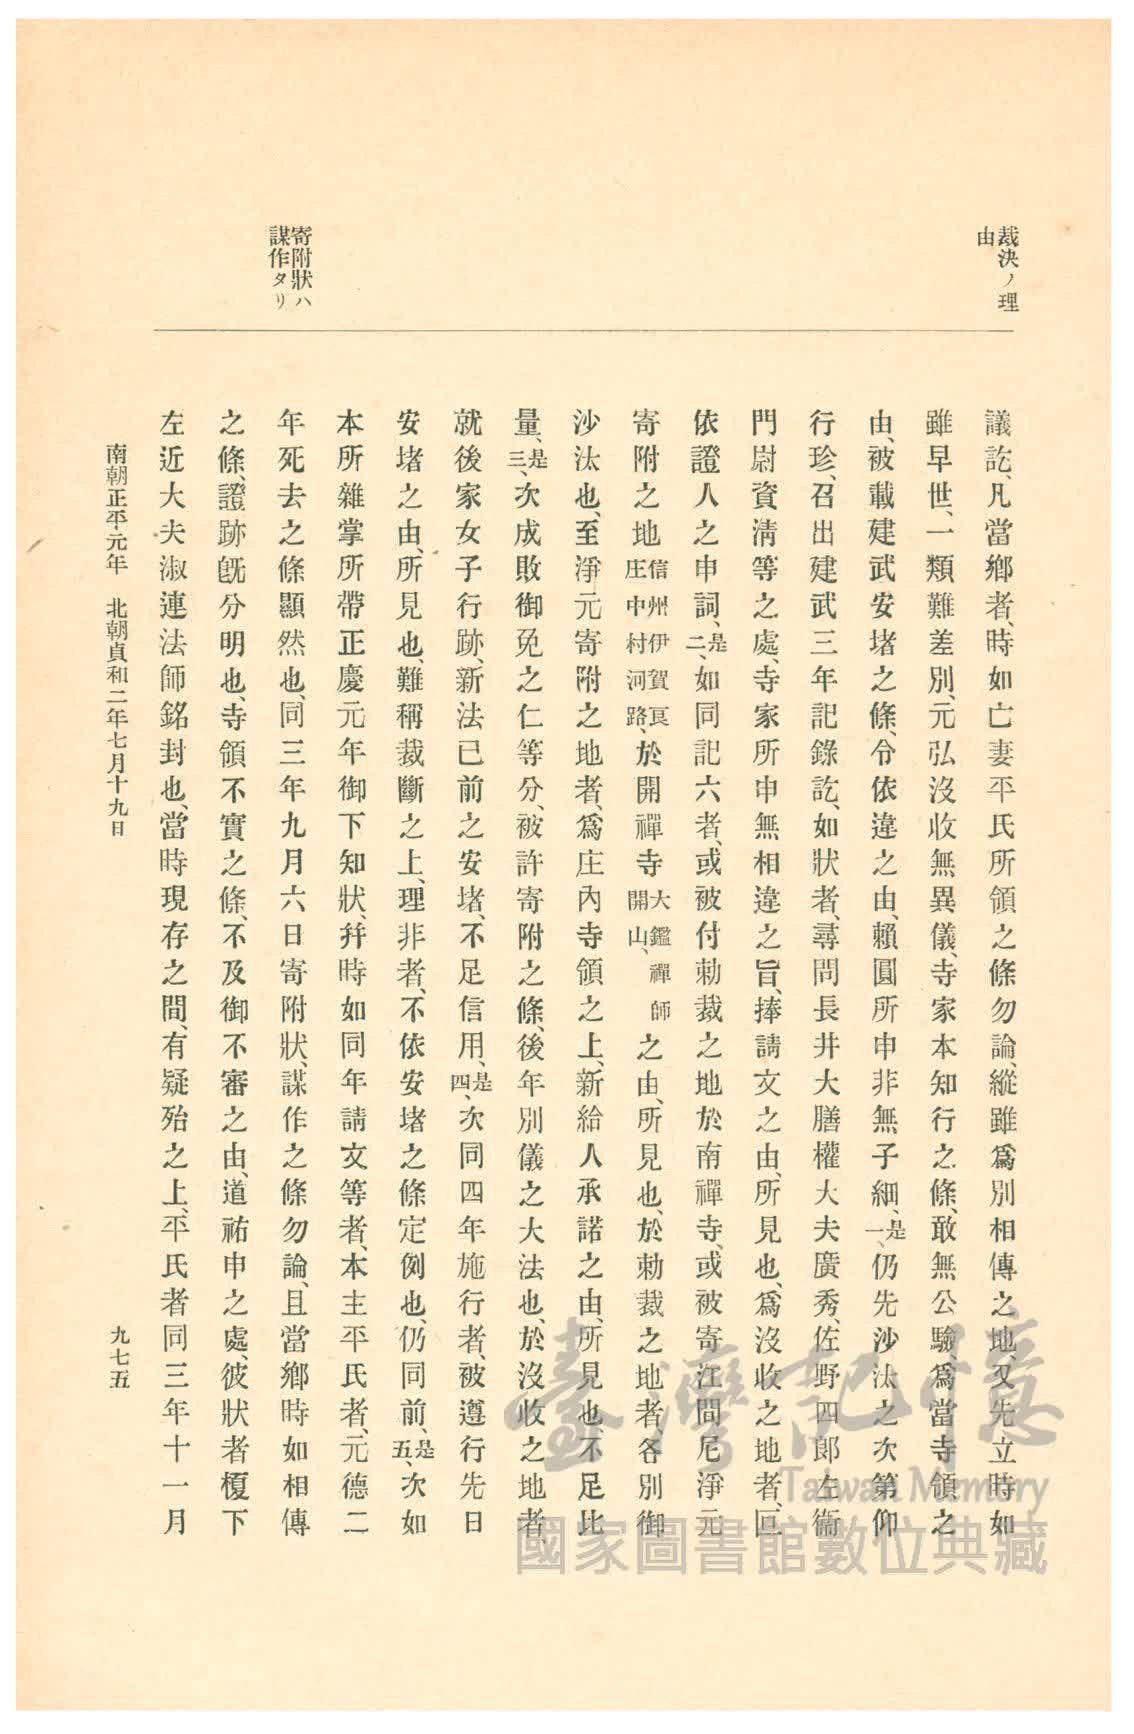 裁決ノ理
由
寄附狀ハ
謀作タリ
議訖、凡當鄕者、時如亡妻平氏所領之條勿論、縱雖爲別相傳之地、又先立時如
雖早世、一類難差別、元弘沒收無異儀、寺家本知行之條、敢無公驗、爲當寺領之
由、被載建武安堵之條、令依違之由、賴圓所申非無子細、是一、仍先沙汰之次第、仰
行珍、召出建武三年記錄訖、如狀者、尋問長井大膳權大夫廣秀、佐野四郞左衞
門尉資淸等之處、寺家所申無相違之旨、捧請文之由、所見也、爲沒收之地者、叵
依證人之申詞、是二、如同記六者、或被付勅裁之地於南禪寺、或被寄江間尼淨元
寄附之地信州伊賀良庄中村河路、於開禪寺大鑑禪師開山、之由、所見也、於勅裁之地者、各別御
沙汰也、至淨元寄附之地者、爲庄內寺領之上、新給人承諾之由、所見也、不足比
量、是三、次成敗御免之仁等分、被許寄附之條、後年別儀之大法也、於沒收之地者、
就後家女子行跡、新法已前之安堵、不足信用、是四、次同四年施行者、被遵行先日
安堵之由、所見也、難稱裁斷之上、理非者、不依安堵之條定例也、仍同前、是五、次如
本所雜掌所帶正慶元年御下知狀、幷時如同年請文等者、本主平氏者、元德二
年死去之條顯然也、同三年九月六日寄附狀、謀作之條勿論、且當鄕時如相傳
之條、證跡旣分明也、寺領不實之條、不及御不審之由、道祐申之處、彼狀者榎下
左近大夫淑連法師銘封也、當時現存之間、有疑殆之上、平氏者同三年十一月
南朝正平元年　北朝貞和二年七月十九日
九七五
臺灣記憶
Taiwan Memory
國家圖書館數位典藏